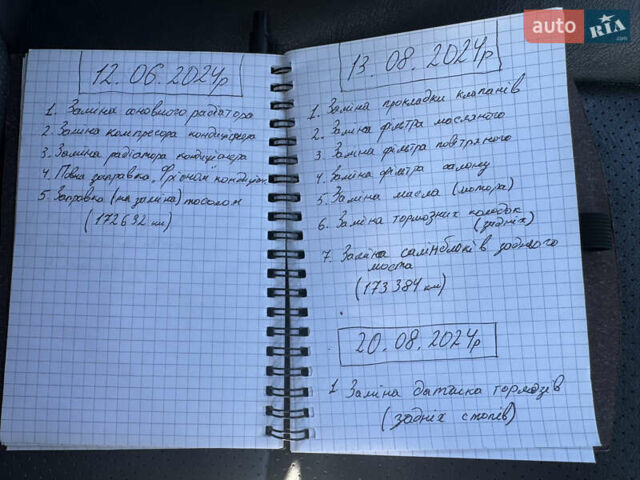 12.06.2024р
1. Заміна основного радіатора
2. Заміна компресора кондиціонера
3. Заміна радіатора кондиціонера
4. Повна заправка фріоном кондиціон.
5. Заправка (та заміна) тосолом
(172632 км)
13.08.2024р
1. Заміна прокладки клапанів
2. Заміна фільтра масляного
3. Заміна фільтра повітряного
4. Заміна фільтра салону
5. Заміна масла (мотора)
6. Заміна тормозних колодок
(задніх)
7. Заміна сайлнблоків заднього
моста
(173384 км)
20.08.2024р
1 Заміна датчика тормозів
(задніх стопів)
auto RIA.com